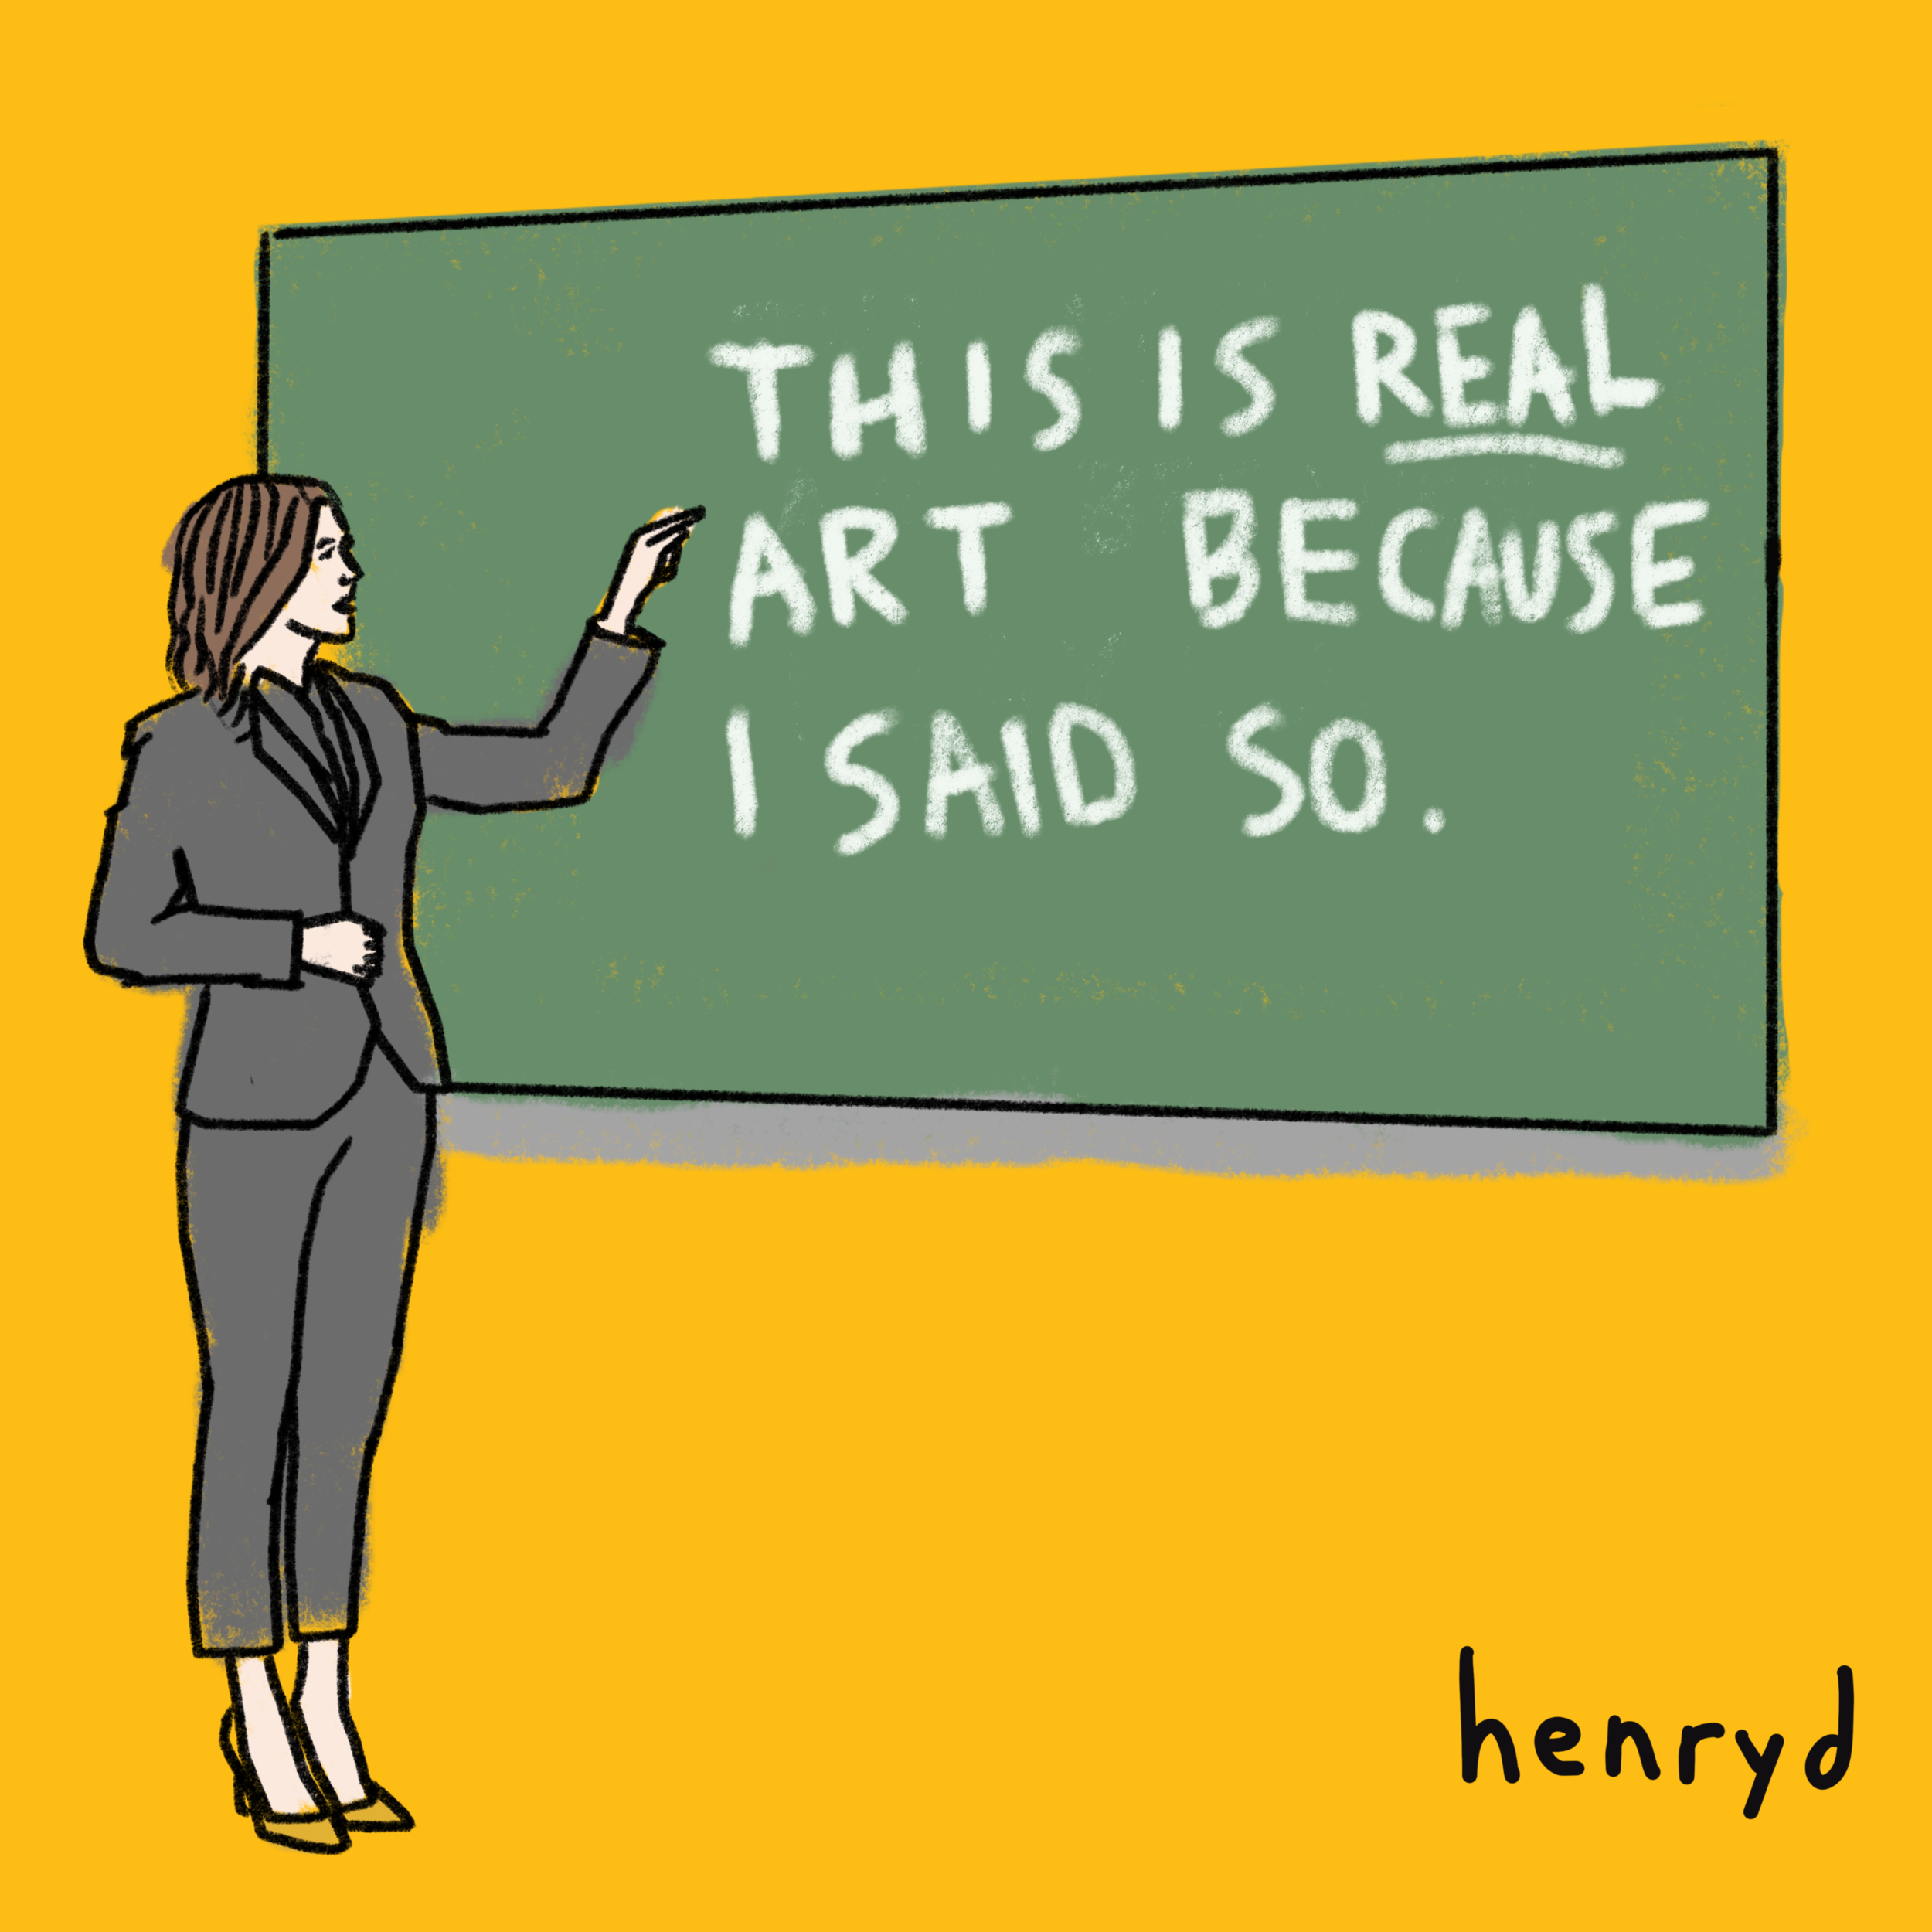 THIS IS REAL
ART BECAUSE
I SAID SO.
henryd